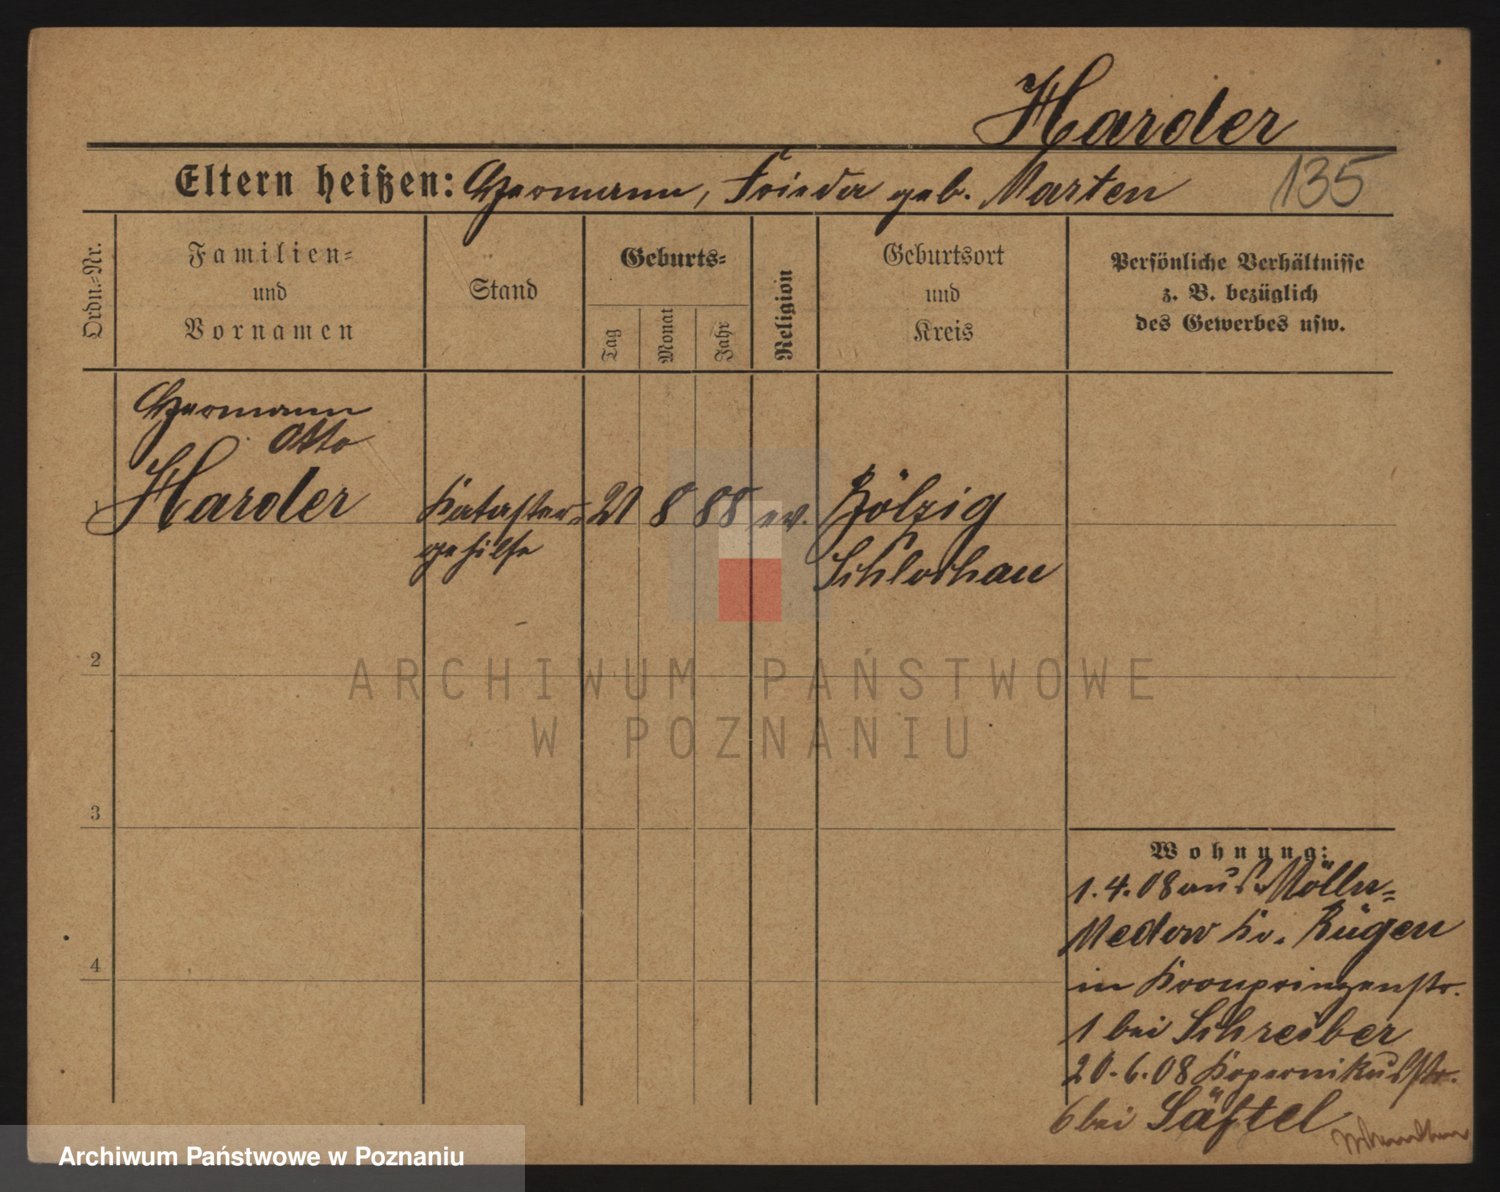 Harder
Eltern heißen: Hermann, Frieda geb. Marten
135
Ordn.-Nr.
Familien-
und
Vornamen
Stand
Geburts-
Tag
Monat
Jahr
Religion
Geburtsort
und
Kreis
Persönliche Verhältnisse
z. B. bezüglich
des Gewerbes usw.
Hermann
Otto
1 Harder Kataster- 21 8 88 ev. Bölzig
gehilfe Schlochau
2
ARCHIWUM PAŃSTWOWE
W POZNANIU
3
Wohnung:
1.4.08 aus Mölln-
Medow Kr. Rügen
4
in Kronprinzenstr.
1 bei Schreiber
20.6.08 Kopernikusstr.
6 bei Säftel
Archiwum Państwowe w Poznaniu